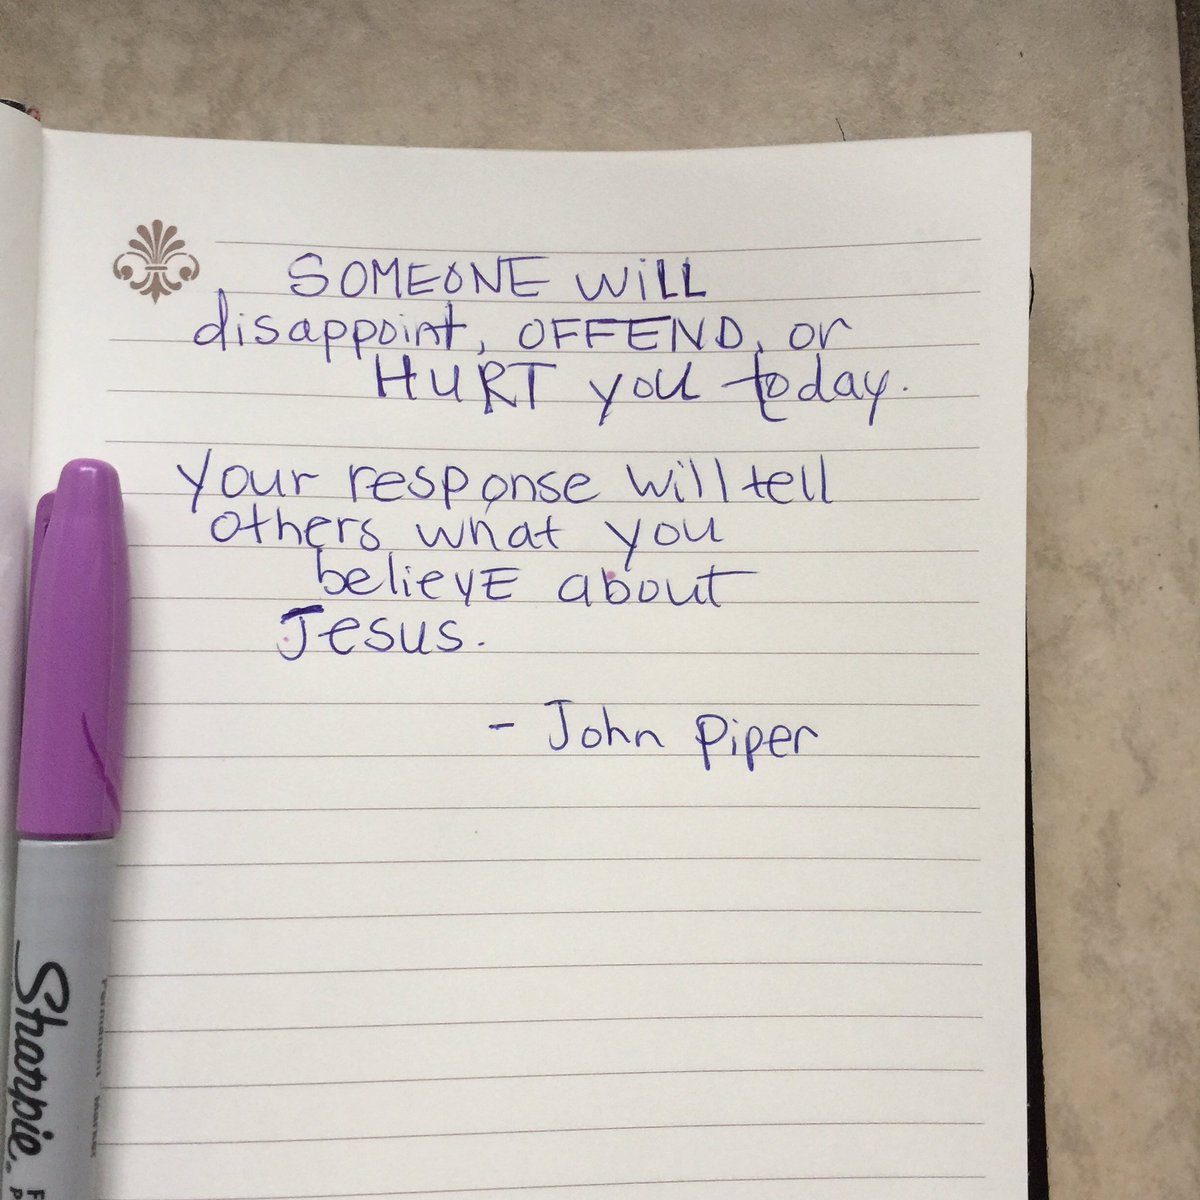 SOMEONE WiLL
disappoint, OFFEND, or
HURT you today.
Your response will tell
others what you
believE about
Jesus.
- John Piper
Sharpie
Permanent Marker